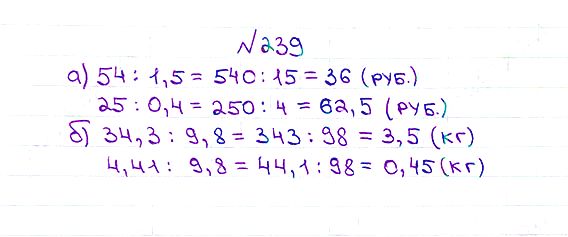 №239
а) 54 : 1,5 = 540 : 15 = 36 (РУБ.)
25 : 0,4 = 250 : 4 = 62,5 (РУБ.)
б) 34,3 : 9,8 = 343 : 98 = 3,5 (кг)
4,41 : 9,8 = 44,1 : 98 = 0,45 (кг)